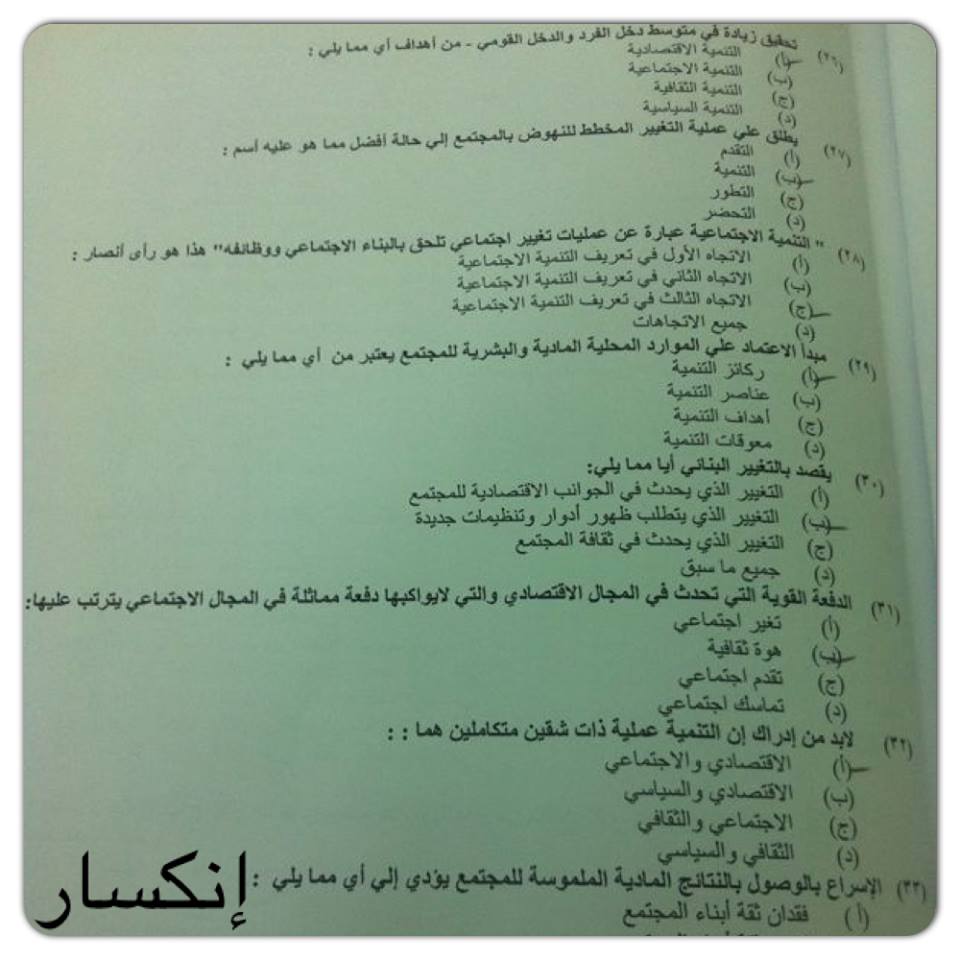 (٢٦) تحقيق زيادة في متوسط دخل الفرد والدخل القومي - من أهداف أي مما يلي :
(أ) التنمية الاقتصادية
(ب) التنمية الاجتماعية
(ج) التنمية الثقافية
(د) التنمية السياسية
(٢٧) يطلق علي عملية التغيير المخطط للنهوض بالمجتمع إلي حالة أفضل مما هو عليه أسم :
(أ) التقدم
(ب) التنمية
(ج) التطور
(د) التحضر
(٢٨) " التنمية الاجتماعية عبارة عن عمليات تغيير اجتماعي تلحق بالبناء الاجتماعي ووظائفه" هذا هو رأى أنصار :
(أ) الاتجاه الأول في تعريف التنمية الاجتماعية
(ب) الاتجاه الثاني في تعريف التنمية الاجتماعية
(ج) الاتجاه الثالث في تعريف التنمية الاجتماعية
(د) جميع الاتجاهات
(٢٩) مبدأ الاعتماد علي الموارد المحلية المادية والبشرية للمجتمع يعتبر من أي مما يلي :
(أ) ركائز التنمية
(ب) عناصر التنمية
(ج) أهداف التنمية
(د) معوقات التنمية
(٣٠) يقصد بالتغيير البنائي أيا مما يلي:
(أ) التغيير الذي يحدث في الجوانب الاقتصادية للمجتمع
(ب) التغيير الذي يتطلب ظهور أدوار وتنظيمات جديدة
(ج) التغيير الذي يحدث في ثقافة المجتمع
(د) جميع ما سبق
(٣١) الدفعة القوية التي تحدث في المجال الاقتصادي والتي لايواكبها دفعة مماثلة في المجال الاجتماعي يترتب عليها:
(أ) تغير اجتماعي
(ب) هوة ثقافية
(ج) تقدم اجتماعي
(د) تماسك اجتماعي
(٣٢) لابد من إدراك إن التنمية عملية ذات شقين متكاملين هما : :
(أ) الاقتصادي والاجتماعي
(ب) الاقتصادي والسياسي
(ج) الاجتماعي والثقافي
(د) الثقافي والسياسي
(٣٣) الإسراع بالوصول بالنتائج المادية الملموسة للمجتمع يؤدي إلي أي مما يلي :
(أ) فقدان ثقة أبناء المجتمع
إنكسار